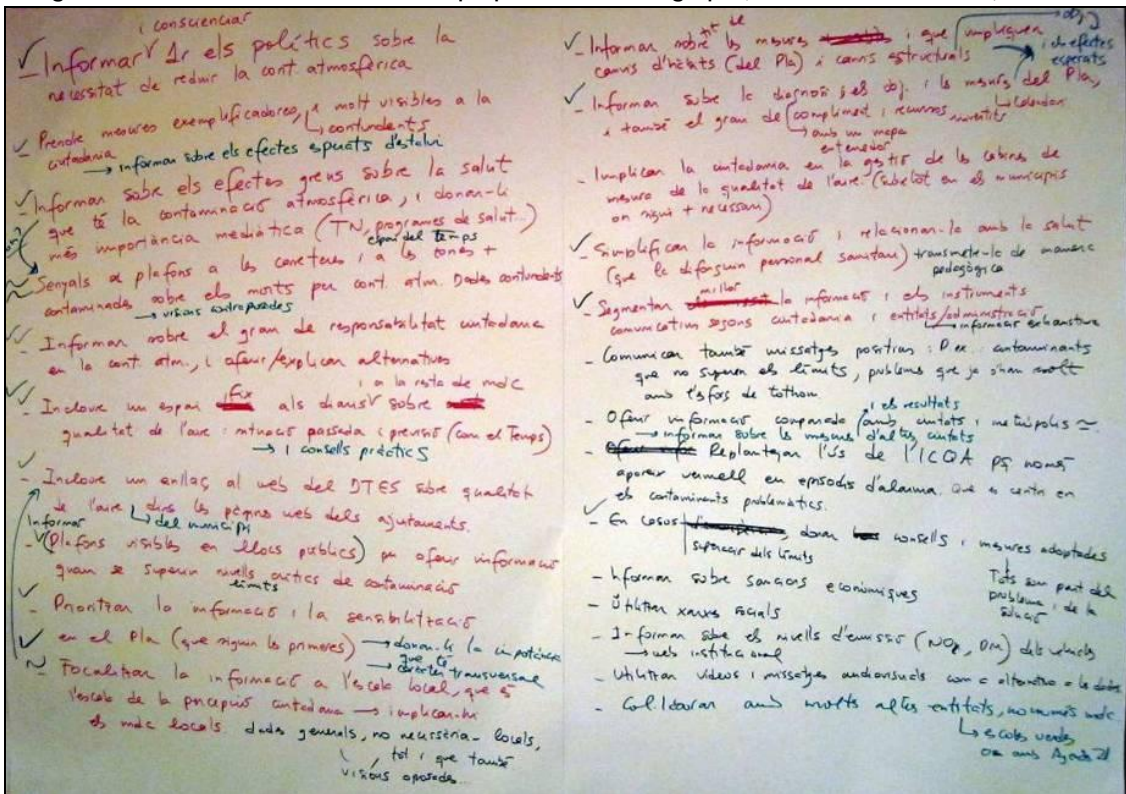 i conscienciar
✓ – Informar 1r els polítics sobre la
necessitat de reduir la cont. atmosfèrica
✓ – Prendre mesures exemplificadores, i molt visibles a la
ciutadania contundents
→ informar sobre els efectes esperats d'estalvi
✓ – Informar sobre els efectes greus sobre la salut
que té la contaminació atmosfèrica, i donar-li
més importància mediàtica (TN, programes de salut..)
espai del temps
– Senyals o plafons a les carreteres i a les zones +
contaminades sobre els morts per cont. atm. Dades contundents
→ visions contraposades
✓ – Informar sobre el grau de responsabilitat ciutadana
en la cont. atm., i oferir/explicar alternatives
i a la resta de mdc
✓ – Incloure un espai fix als diaris sobre
qualitat de l'aire: situació passada i previsió (com el Temps)
→ i consells pràctics
✓ – Incloure un enllaç al web del DTES sobre qualitat
de l'aire dins les pàgines web dels ajuntaments.
del municipi
Informar
– (Plafons visibles en llocs públics) per oferir informació
quan se superin nivells crítics de contaminació
límits
✓ – Prioritzar la informació i la sensibilització
✓ en el Pla (que siguin les primeres) → donar-li la importància
que té
→ caràcter transversal
~ – Focalitzar la informació a l'escala local, que és
l'escala de la percepció ciutadana → implicar-hi
els mdc locals. dades generals, no necessària- locals,
tot i que també
visions oposades...
✓ – Informar sobre les mesures i que impliquen
canvis d'hàbits (del Pla) i canvis estructurals
i els efectes
esperats
✓ – Informar sobre la diagnosi i els obj. i les mesures del Pla,
i també el grau de compliment i recursos invertits
calendari
amb un mapa
entenedor
– Implicar la ciutadania en la gestió de les cabines de
mesura de la qualitat de l'aire. (sobretot en els municipis
on sigui + necessari)
✓ – Simplificar la informació i relacionar-la amb la salut
(que la difonguin personal sanitari) transmetre-la de manera
pedagògica
millor
✓ – Segmentar la informació i els instruments
comunicatius segons ciutadania i entitats/administració
→ informació exhaustiva
– Comunicar també missatges positius: P.ex.: contaminants
que no superen els límits, problemes que ja s'han resolt
amb l'esforç de tothom
i els resultats
– Oferir informació comparada amb ciutats i metròpolis ~
→ informar sobre les mesures d'altres ciutats
– Replantejar l'ús de l'ICQA pq només
apareix vermell en episodis d'alarma. Que es centri en
els contaminants problemàtics.
✓ – En casos, donar consells i mesures adoptades
superació dels límits
Tots som part del
problema i de la
solució
– Informar sobre sancions econòmiques
– Utilitzar xarxes socials
– Informar sobre els nivells d'emissió (NOx, PM) dels vehicles
→ web institucional
– Utilitzar vídeos i missatges audiovisuals com a alternativa a les dades
– Col·laborar amb moltes altres entitats, no només mdc
→ escoles verdes
o amb Agenda 21